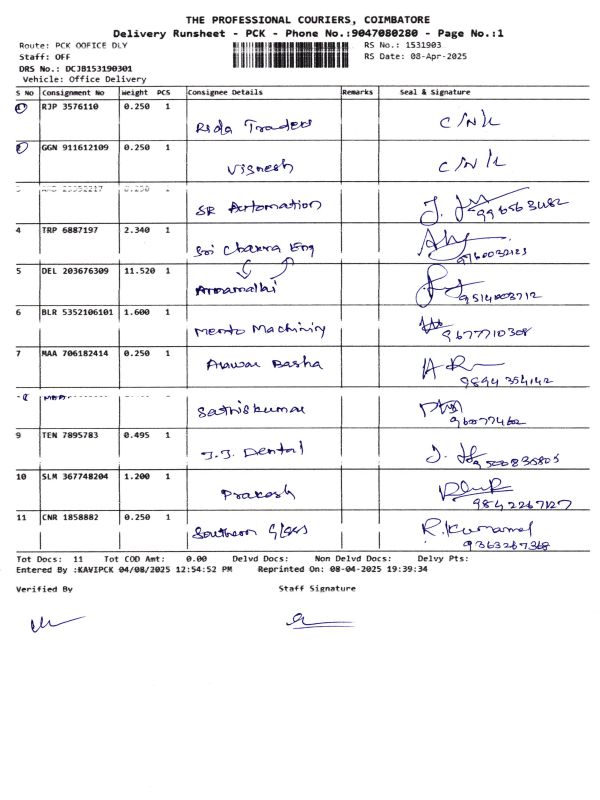 THE PROFESSIONAL COURIERS, COIMBATORE
Delivery Runsheet - PCK - Phone No.:9047080280 - Page No.:1
Route: PCK OOFICE DLY
RS No.: 1531903
Staff: OFF
RS Date: 08-Apr-2025
DRS No.: DCJB153190301
Vehicle: Office Delivery
S No Consignment No Weight PCS Consignee Details Remarks Seal & Signature
1 RJP 3576110 0.250 1
Rida Traders C/N/L
2 GGN 911612109 0.250 1
Vignesh C/N/L
SR Automation
4 TRP 6887197 2.340 1
Sri Chakra Eng
5 DEL 203676309 11.520 1
Annamallai 9514003712
6 BLR 5352106101 1.600 1
Mento Machiniry 9677710308
7 MAA 706182414 0.250 1
Basha 9894354142
Sathiskumar
9 TEN 7895783 0.495 1
J.J. Dental 9500835805
10 SLM 367748204 1.200 1
Prakash 9842267127
11 CNR 1858882 0.250 1
Southern Glass 9363267368
Tot Docs: 11 Tot COD Amt: 0.00 Delvd Docs: Non Delvd Docs: Delvy Pts:
Entered By :KAVIPCK 04/08/2025 12:54:52 PM Reprinted On: 08-04-2025 19:39:34
Verified By Staff Signature